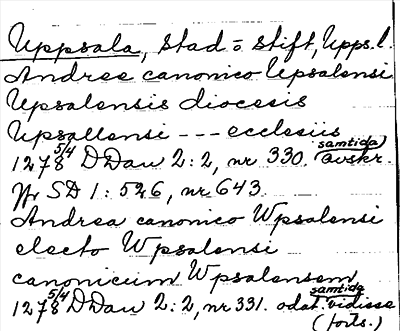 Uppsala, stad o stift, Upps. l.
Andree canonico Upsalensi
Upsalensis diocesis
Upsallensi --- ecclesiis
1278 5/4 DDan 2:2, nr 330. samtida avskr.
Jfr SD 1:526, nr 643.
Andrea canonico Wpsalensi
electo Wpsalensi
canonicum Wpsalensem
1278 5/4 DDan 2:2, nr 331. odat. samtida vidisse
(forts.)